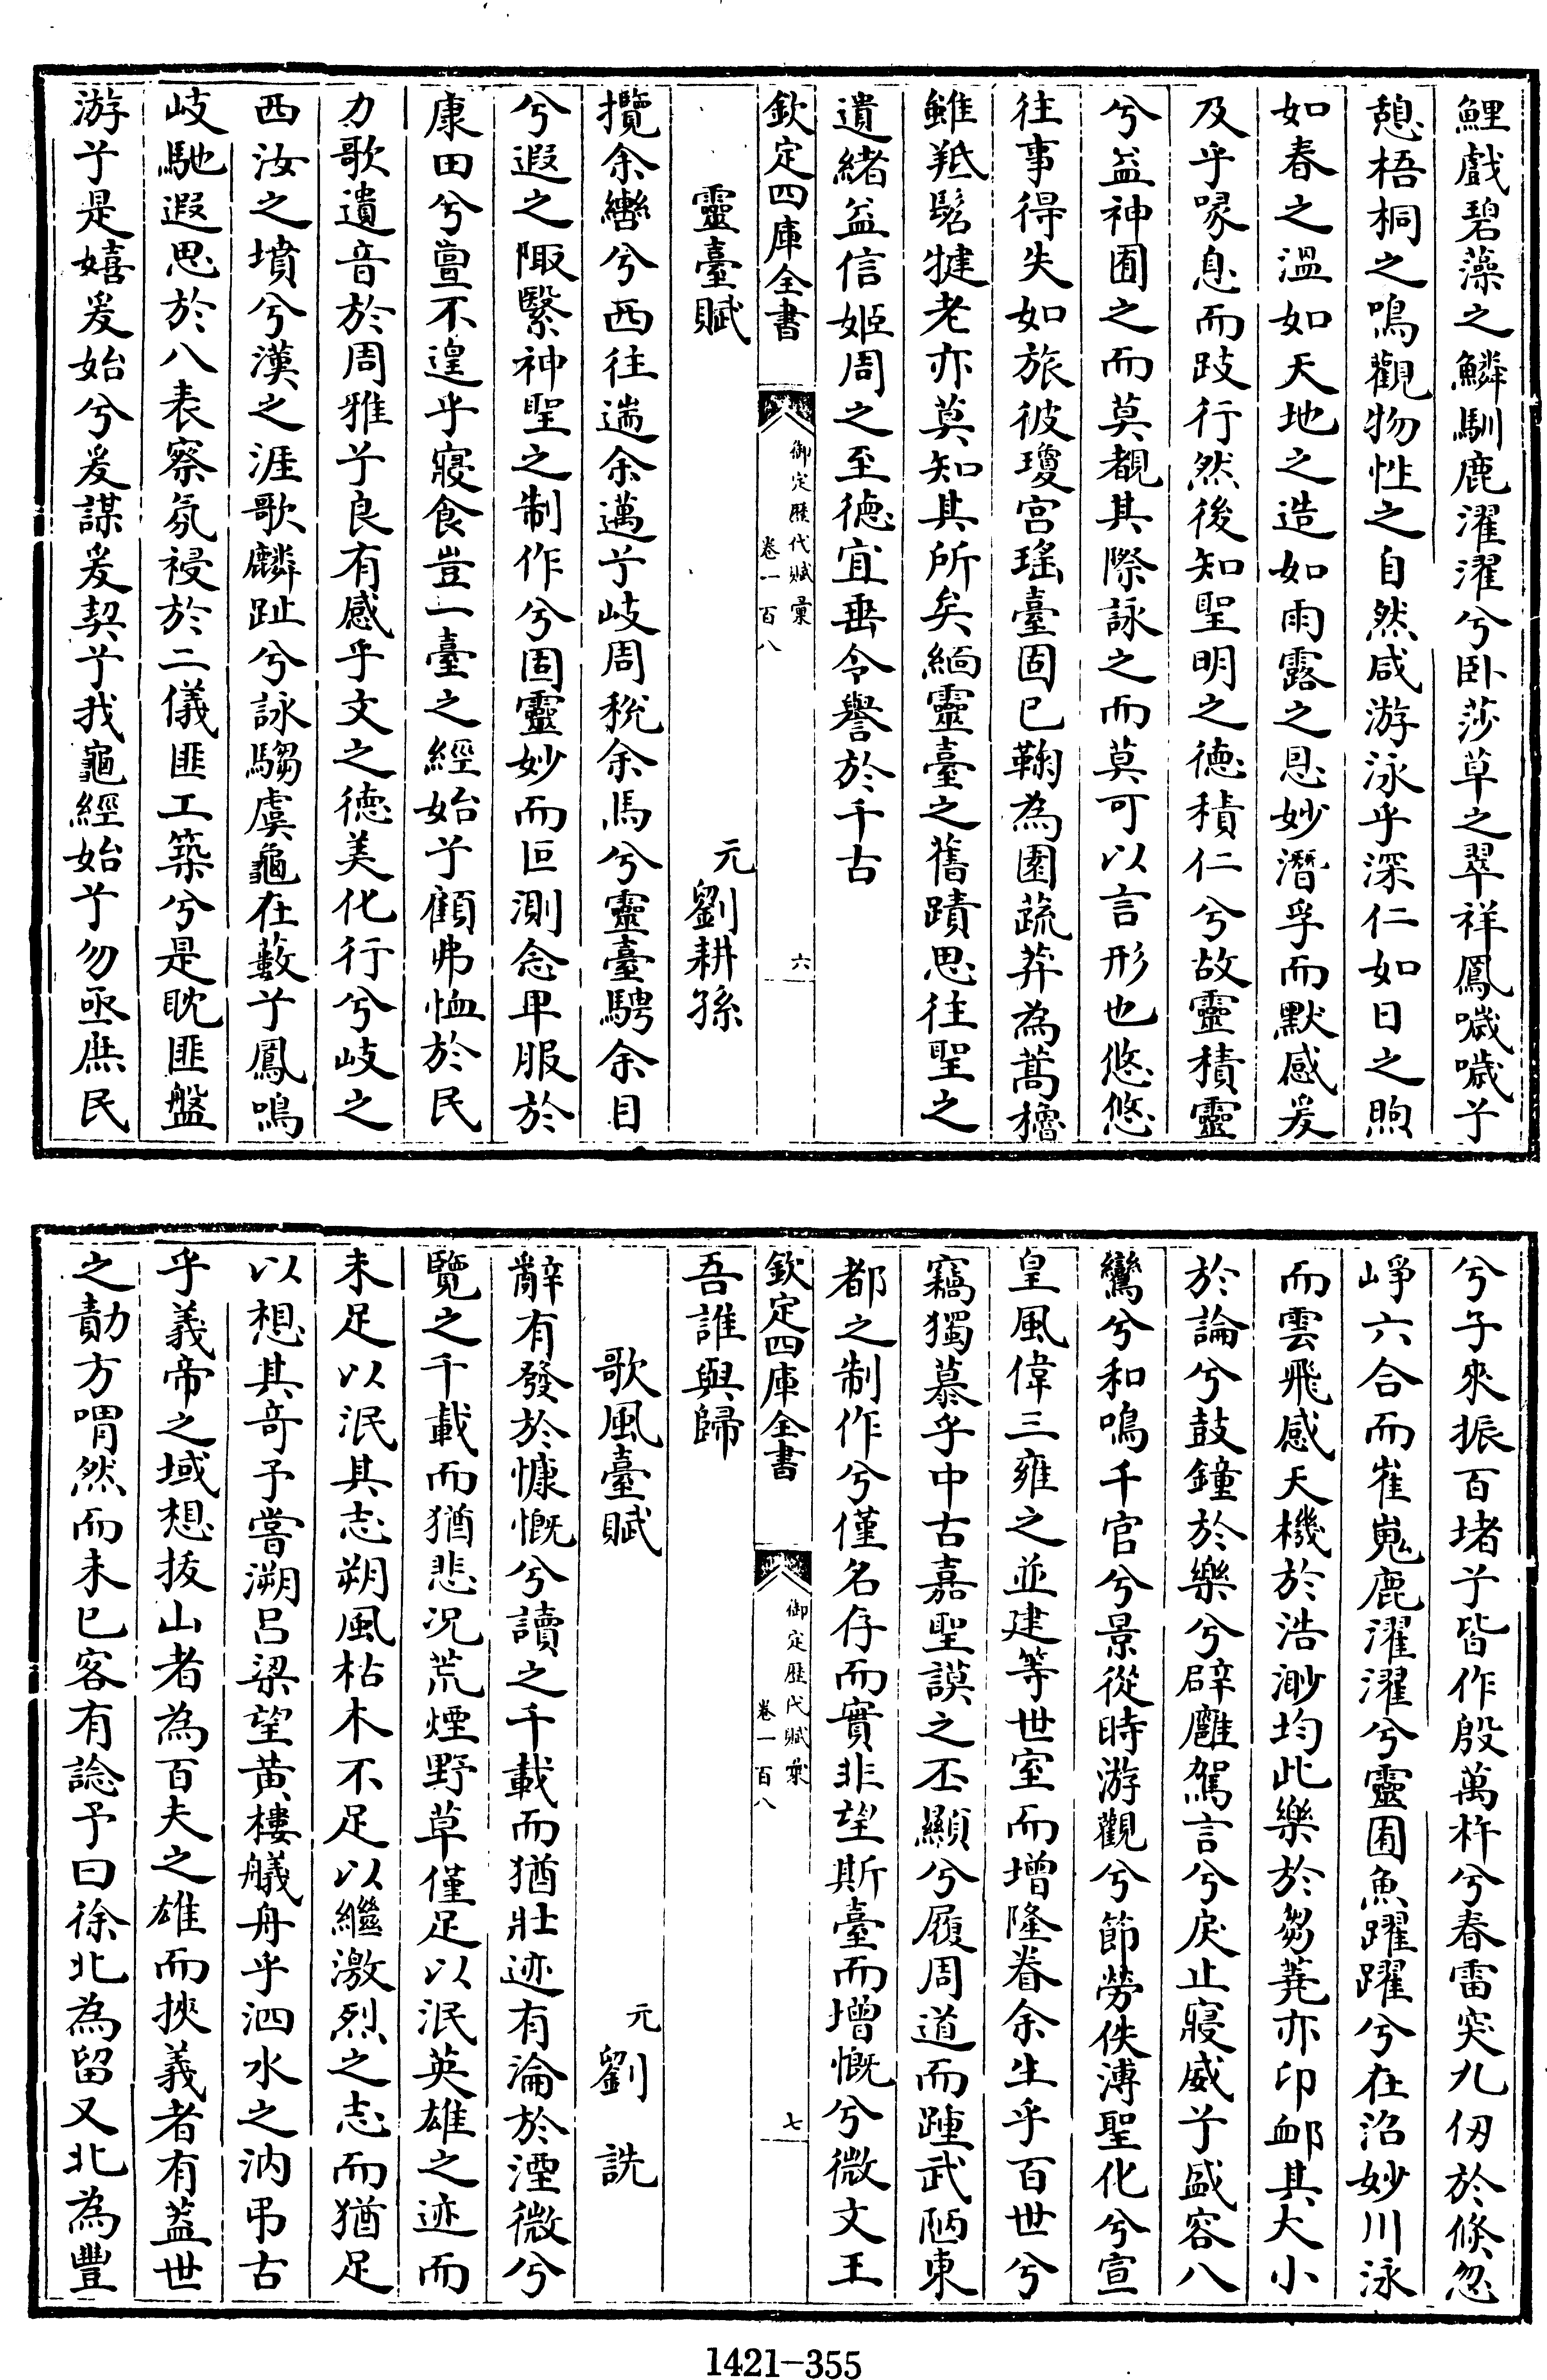 鯉戲碧藻之鱗馴鹿濯濯兮卧莎草之翠祥鳳噦噦兮
憩梧桐之鳴觀物性之自然咸游泳乎深仁如日之煦
如春之溫如天地之造如雨露之恩妙潛孚而默感爰
及乎喙息而跂行然後知聖明之德積仁兮故靈積靈
兮益神囿之而莫覩其際詠之而莫可以言形也悠悠
往事得失如旅彼瓊宫瑤臺固已鞠為園蔬莽為蒿穭
雖羝髠犍老亦莫知其所矣緬靈臺之舊蹟思往聖之
遺緒益信姬周之至德宜垂令譽於千古
欽定四庫全書
御定歷代賦彙
卷一百八
六
靈臺賦
元劉耕孫
攬余轡兮西往遄余邁兮岐周税余馬兮靈臺騁余目
兮遐之陬繄神聖之制作兮固靈妙而叵測念卑服於
康田兮亶不遑乎寢食豈一臺之經始兮顧弗恤於民
力歌遺音於周雅兮良有感乎文之德美化行兮岐之
西汝之墳兮漢之涯歌麟趾兮詠騶虞龜在藪兮鳳鳴
岐馳遐思於八表察氛祲於二儀匪工築兮是耽匪盤
游兮是嬉爰始兮爰謀爰契兮我龜經始兮勿亟庶民
兮子來振百堵兮皆作殷萬杵兮春雷突九仞於倏忽
崢六合而崔嵬鹿濯濯兮靈囿魚躍躍兮在沼妙川泳
而雲飛感天機於浩渺均此樂於芻蕘亦卬衃其大小
於論兮鼓鐘於樂兮辟廱駕言兮戾止寢威兮盛容八
鸞兮和鳴千官兮景從時游觀兮節勞佚溥聖化兮宣
皇風偉三雍之並建等世室而增隆眷余生乎百世兮
竊獨慕乎中古嘉聖謨之丕顯兮履周道而踵武陋東
都之制作兮僅名存而實非望斯臺而增慨兮微文王
欽定四庫全書
御定歷代賦彙
卷一百八
七
吾誰與歸
歌風臺賦
元劉詵
辭有發於慷慨兮讀之千載而猶壯迹有淪於湮微兮
覽之千載而猶悲况荒煙野草僅足以泯英雄之迹而
未足以泯其志朔風枯木不足以繼激烈之志而猶足
以想其奇予嘗溯吕梁望黄樓艤舟乎泗水之汭弔古
乎義帝之域想拔山者為百夫之雄而挾義者有蓋世
之勣方喟然而未已客有諗予曰徐北為留又北為豐
1421-355